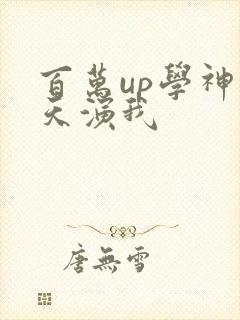 百萬up學神
天演我
唐無雪